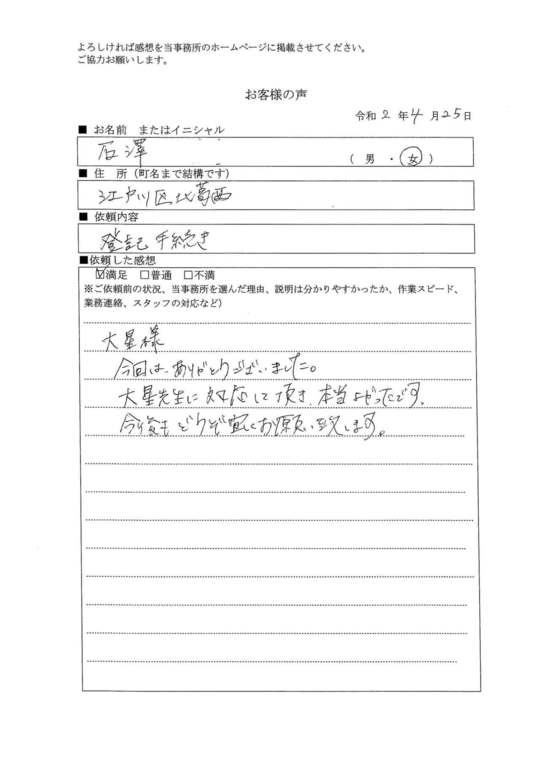 よろしければ感想を当事務所のホームページに掲載させてください。
ご協力お願いします。
お客様の声
令和 2 年 4 月 25 日
■ お名前 またはイニシャル
石澤
( 男 ・ 女 )
■ 住 所(町名まで結構です)
江戸川区北葛西
■ 依頼内容
登記手続き
■依頼した感想
☑満足 □普通 □不満
※ご依頼前の状況、当事務所を選んだ理由、説明は分かりやすかったか、作業スピード、
業務連絡、スタッフの対応など)
大星様
今回は、ありがとうございました。
大星先生に対応して頂き、本当よかったです。
今後もどうぞ宜しくお願い致します。